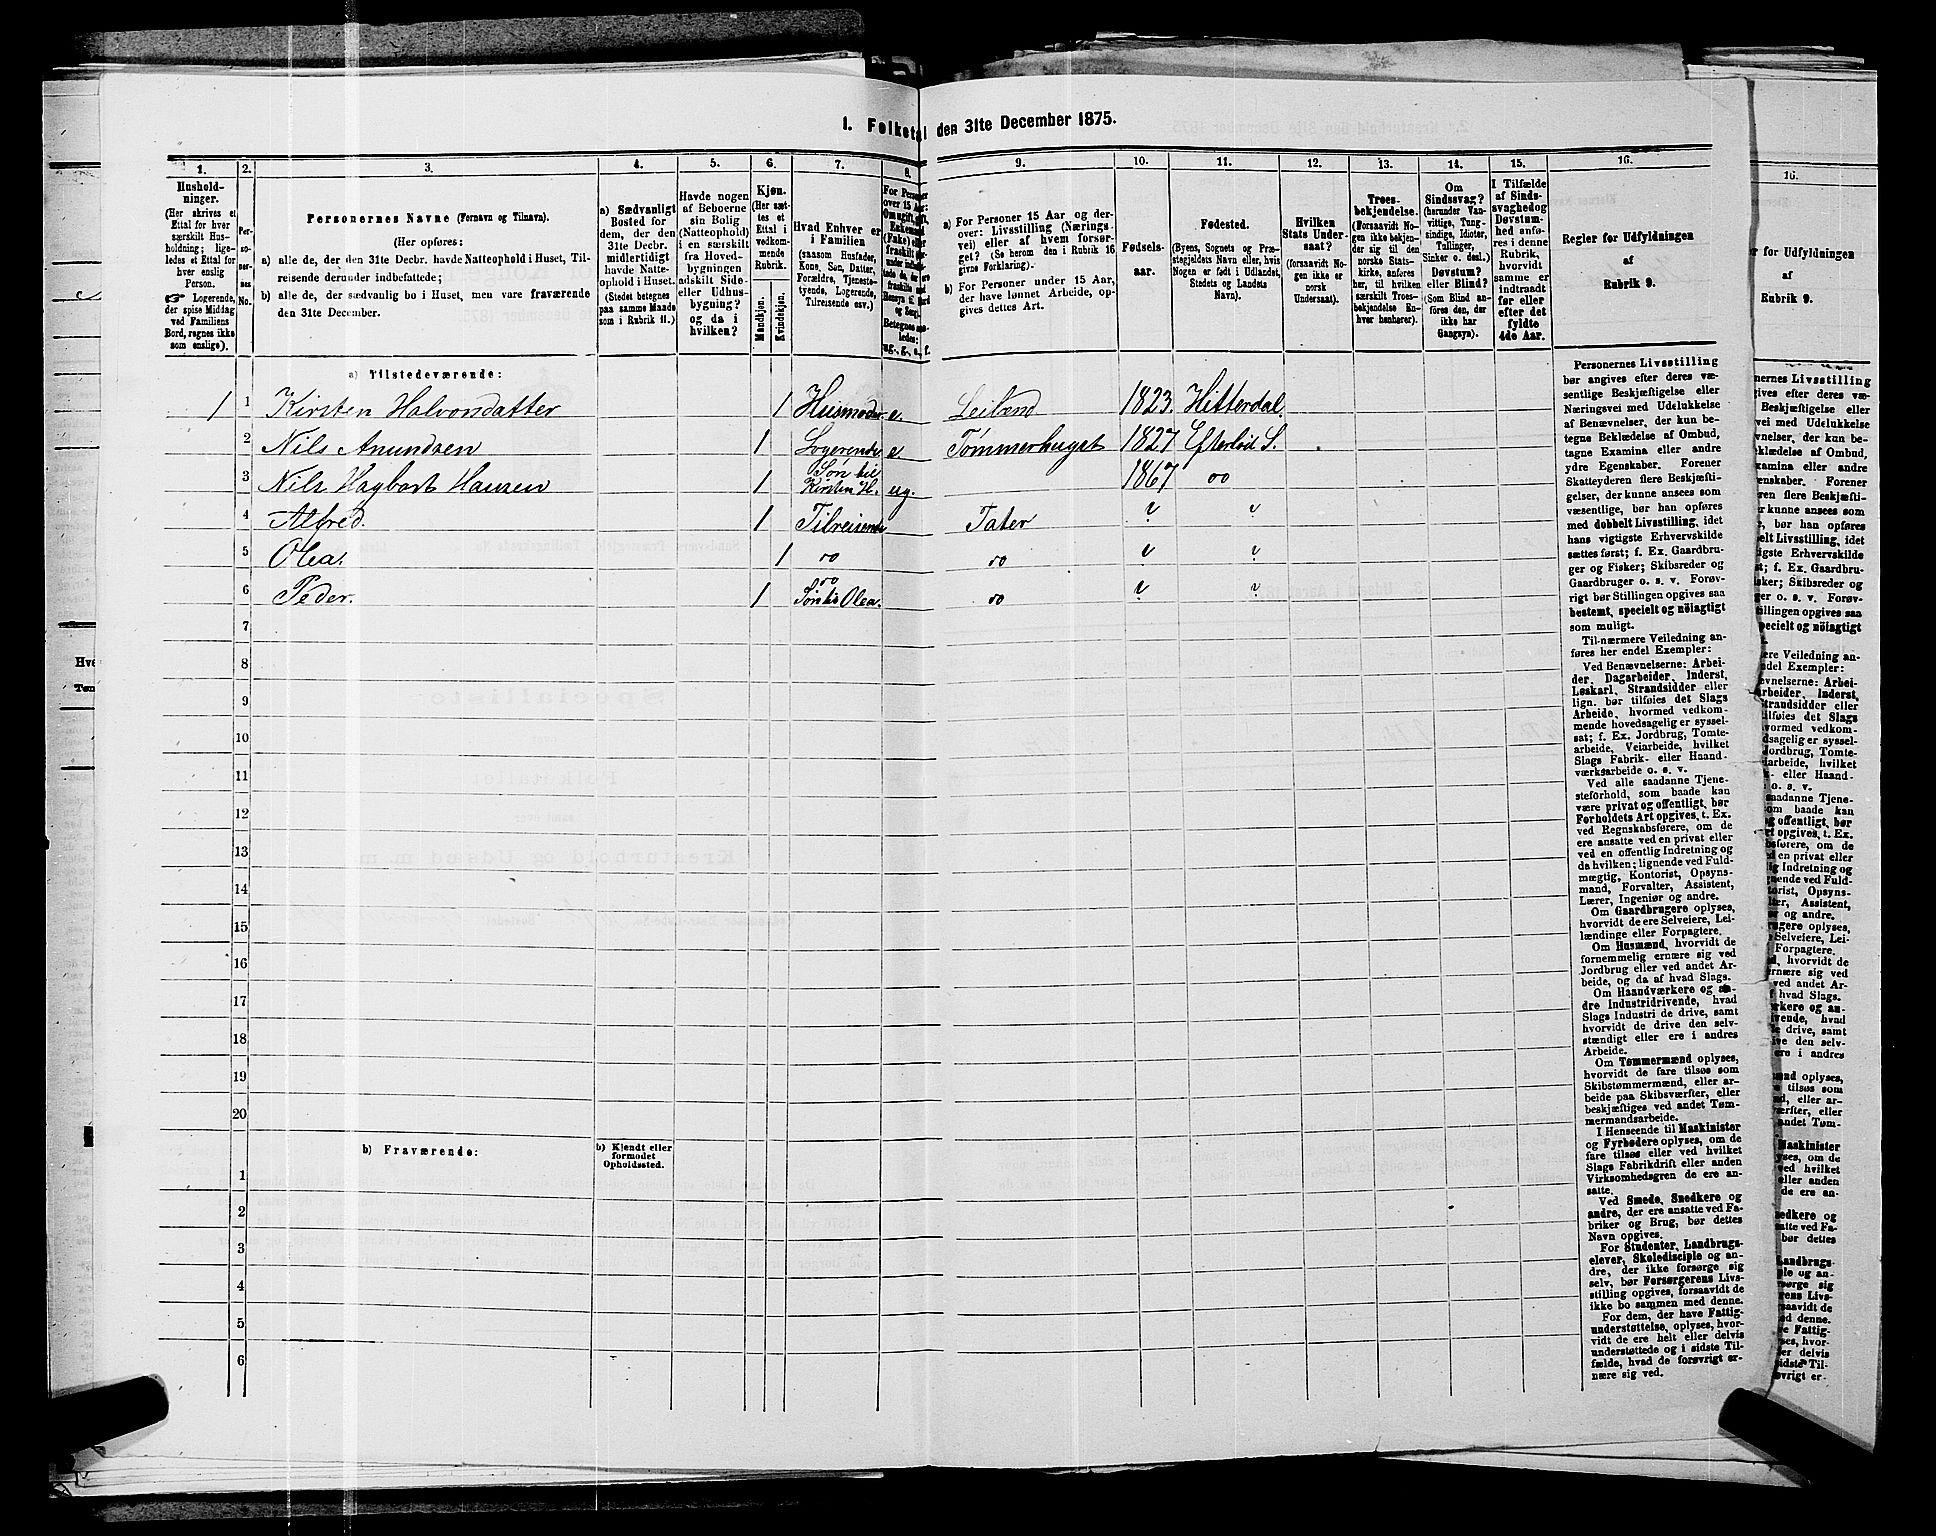 1. Folketal den 31te December 1875.
1.
2.
3.
4.
5.
6.
7.
8.
9.
10.
11.
12.
13.
14.
15.
16.
Hushold-
ninger.
(Her skrives et
Ettal for hver
særskilt Hus-
holdning; lige-
ledes et Ettal for
hver enslig
Person.
Logerende,
der spise Middag
ved Familiens
Bord, regnes ikke
som enslige).
Per-
so-
ner-
nes
No.
Personernes Navne (Fornavn og Tilnavn).
(Her opføres:
a) alle de, der den 31te Decbr. havde Natteophold i Huset, Til-
reisende derunder indbefattede;
b) alle de, der sædvanlig bo i Huset, men vare fraværende
den 31te December.
a) Sædvanligt
Bosted for
dem, der den
31te Decbr.
midlertidigt
havde Natte-
ophold i Huset.
(Stedet betegnes
paa samme Maade
som i Rubrik 11.)
Havde nogen
af Beboerne
sin Bolig
(Natteophold)
i en særskilt
fra Hoved-
bygningen
adskilt Side-
eller Udhus-
bygning?
og da i
hvilken?
Kjøn.
(Her sæt-
tes et
Ettal i
vedkom-
mende
Rubrik.
Mandkjøn.
Kvindekjøn.
Hvad Enhver er
i Familien
(saasom Husfader,
Kone, Søn, Datter,
Forældre, Tjeneste-
tyende, Logerende,
Tilreisende osv.)
For Personer
over 15 Aar:
Betegnes saa-
ledes:
ug., g., e., f.
a) For Personer 15 Aar og der-
over: Livsstilling (Nærings-
vei) eller af hvem forsør-
get? (Se herom den i Rubrik 16
givne Forklaring).
b) For Personer under 15 Aar,
der have lønnet Arbeide, op-
gives dettes Art.
Fødsels-
aar.
Fødested.
(Byens, Sognets og Præ-
stegjeldets Navn eller, hvis
Nogen er født i Udlandet,
Stedets og Landets
Navn).
Hvilken
Stats Under-
saat?
(forsaavidt No-
gen ikke er
norsk
Undersaat).
Troes-
bekjendelse.
(Forsaavidt No-
gen ikke bekjen-
der sig til den
norske Stats-
kirke, anføres
her, til hvilken
særskilt Troes-
bekjendelse En-
hver henhører).
Om
Sindssvag?
(herunder Van-
vittige, Tung-
sindige, Idioter,
Tullinger,
Sinker o. desl.)
Døvstum?
eller Blind?
(Som Blind an-
føres den, der
ikke har
Gangsyn).
I Tilfælde
af Sinds-
svaghed og
Døvstum-
hed anfø-
res i denne
Rubrik,
hvorvidt
samme er
indtraadt
før eller
efter det
fyldte
4de Aar.
Regler for Udfyldningen
af
Rubrik 9.
a) Tilstedeværende:
1 1 Kirsten Halvorsdatter 1 Husmoder e. 1823. Hitterdal
2 Nils Amundsen 1 Logerende e Tømmerhuget 1827. Efterløt S.
3 Nils Hagbart Hansen 1 Søn til Kirsten H. ug. 1867 oo
4 Alfred. 1 Tilreisende Tater ? ?
5 Olea. 1 oo oo ? ?
6 Peder. 1 oo Søn til Olea. oo ? ?
7
8
9
10
11
12
13
14
15
16
17
18
19
20
b) Fraværende:
b) Kjendt eller
formodet
Opholdssted.
1
2
3
4
5
6
Personernes Livsstilling
bør angives efter deres væ-
sentlige Beskjæftigelse eller
Næringsvei med Udelukkelse
af Benævnelser, der kun be-
tegne Beklædelse af Ombud,
tagne Examina eller andre
ydre Egenskaber. Forener
Skatteyderen flere Beskjæfti-
gelser, der kunne ansees som
væsentlige, bør han opføres
med dobbelt Livsstilling, idet
hans vigtigste Erhvervskilde
sættes først; f. Ex. Gaardbru-
ger og Fisker; Skibsreder og
Gaardbruger o. s. v. Forøv-
rigt bør Stillingen opgives saa
bestemt, specielt og nöiagtigt
som muligt.
Til nærmere Veiledning an-
føres her endel Exempler:
Ved Benævnelserne: Arbei-
der, Dagarbeider, Inderst,
Løskarl, Strandsidder eller
lign. bør tilføies det Slags
Arbeide, hvormed vedkom-
mende hovedsagelig er syssel-
sat; f. Ex. Jordbrug, Tomte-
arbeide, Veiarbeide, hvilket
Slags Fabrik- eller Haand-
værksarbeide o. s. v.
Ved alle saadanne Tjene-
steforhold, som baade kan
være privat og offentligt, bør
Forholdets Art opgives, t. Ex.
ved Regnskabsførere, om de
ere ansatte ved en privat eller
ved en offentlig Indretning og
da hvilken; lignende ved Fuld-
mægtig, Kontorist, Opsyns-
mand, Forvalter, Assistent,
Lærer, Ingeniør og andre.
Om Gaardbrugere oplyses,
hvorvidt de ere Selveiere, Lei-
lændinge eller Forpagtere.
Om Husmænd, hvorvidt de
fornemmelig ernære sig ved
Jordbrug eller ved andet Ar-
beide, og da af hvad Slags.
Om Haandværkere og an-
dre Industridrivende, hvad
Slags Industri de drive, samt
hvorvidt de drive den selv-
stændigt eller ere i andres
Arbeide.
Om Tømmermænd oplyses,
hvorvidt de fare tilsøs som
Skibstømmermænd, eller ar-
beide paa Skibsværfter, eller
beskjæftiges ved andet Tøm-
mermandsarbeide.
I Henseende til Maskinister
og Fyrbødere oplyses, om de
fare tilsøs eller ved hvilket
Slags Fabrikdrift eller anden
Virksomhedsgren de ere an-
satte.
Ved Smede, Snedkere og
andre, der ere ansatte ved Fa-
briker og Brug, bør dettes
Navn opgives.
For Studenter, Landbrugs-
elever, Skoledisciple og an-
dre, der ikke forsørge sig
selv, bør Forsørgerens Livs-
stilling opgives, forsaavidt de
ikke bo sammen med denne.
For dem, der have Fattig-
understøttelse, oplyses, hvor-
vidt de ere helt eller delvis
understøttede og i sidste Til-
fælde, hvad de forøvrigt er-
nære sig ved.